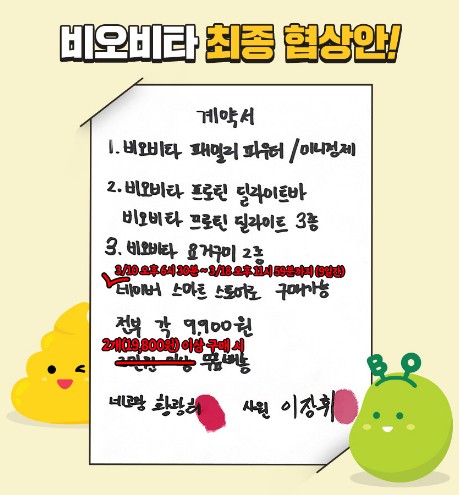 비오비타 최종 협상안!
계약서
1. 비오비타 패밀리 파우더 / 미니정제
2. 비오비타 프로틴 딜라이트바
비오비타 프로틴 딜라이트 3종
3. 비오비타 요거구미 2종
3/10 오후 6시 30분 ~ 3/18 오후 11시 59분까지 (9일간)
네이버 스마트 스토어로 구매가능
전부 각 9,900원
2개(19,800원) 이상 구매 시
이상 무료배송
네고왕 황광희 사원 이장휘
BO